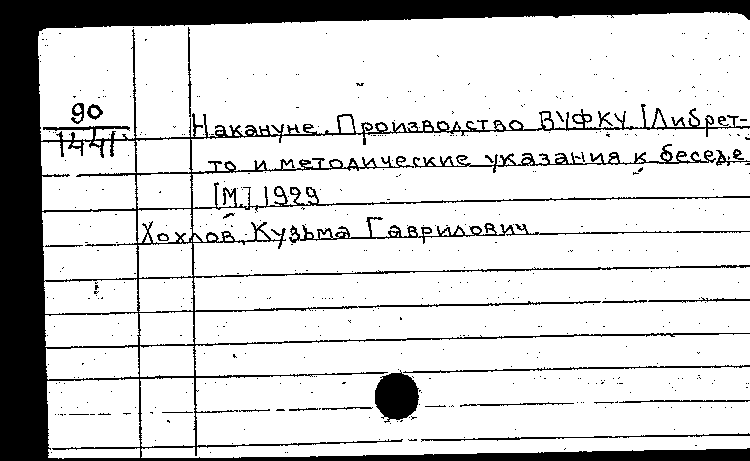 90
1441
Накануне. Производство ВУФКУ. [Либрет-
то и методические указания к беседе
[М.], 1929
Хохлов, Кузьма Гаврилович.